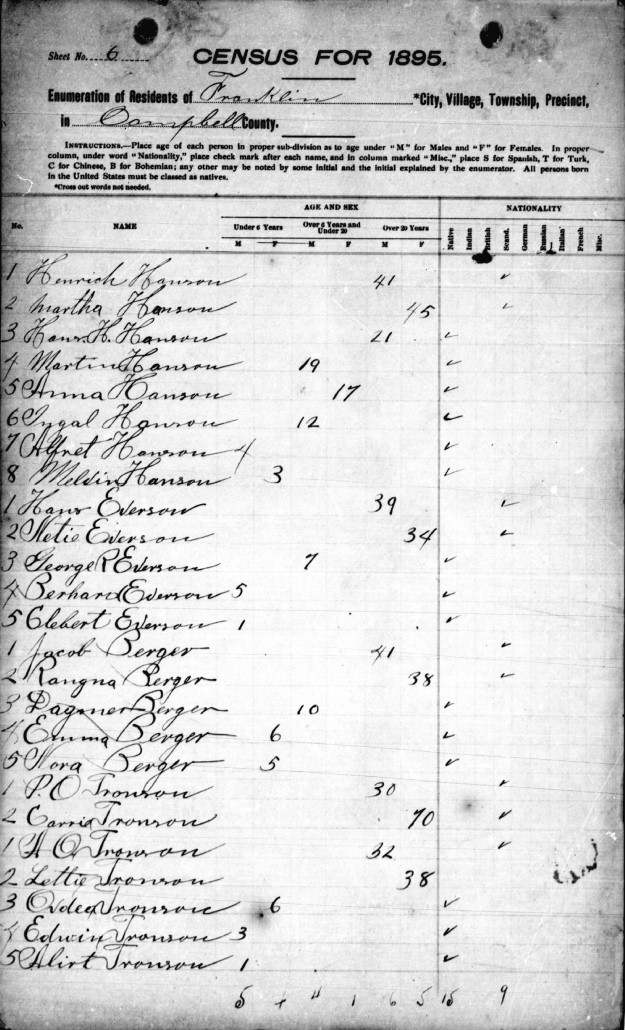 Sheet No. 6
CENSUS FOR 1895.
Enumeration of Residents of Franklin *City, Village, Township, Precinct,
in Campbell County.
INSTRUCTIONS.—Place age of each person in proper sub-division as to age under "M" for Males and "F" for Females. In proper
column, under word "Nationality," place check mark after each name, and in column marked "Misc.," place S for Spanish, T for Turk,
C for Chinese, B for Bohemian; any other may be noted by some initial and the initial explained by the enumerator. All persons born
in the United States must be classed as natives.
*Cross out words not needed.
AGE AND SEX NATIONALITY
No. NAME Under 6 Years Over 6 Years and Under 20 Over 20 Years Native Indian British Scand. German Russian Italian French Misc.
M F M F M F
1 Henrich Hanson 41 ✓
2 Martha Hanson 45 ✓
3 Hans H. Hanson 21 ✓
4 Martin Hanson 19 ✓
5 Anna Hanson 17 ✓
6 Ingal Hanson 12 ✓
7 Alfret Hanson 4 ✓
8 Melvin Hanson 3 ✓
1 Hans Everson 39 ✓
2 Netie Everson 34 ✓
3 George P Everson 7 ✓
4 Berhard Everson 5 ✓
5 Clebert Everson 1 ✓
1 Jacob Berger 41 ✓
2 Rangna Berger 38 ✓
3 Dagmer Berger 10 ✓
4 Emma Berger 6 ✓
5 Nora Berger 5 ✓
1 P. O Tronson 30 ✓
2 Carrie Tronson 70 ✓
1 A O. Tronson 32 ✓
2 Lettie Tronson 38
3 Ovdea Tronson 6 ✓
4 Edwin Tronson 3 ✓
5 Alirt Tronson 1 ✓
5 4 4 1 6 5 15 9